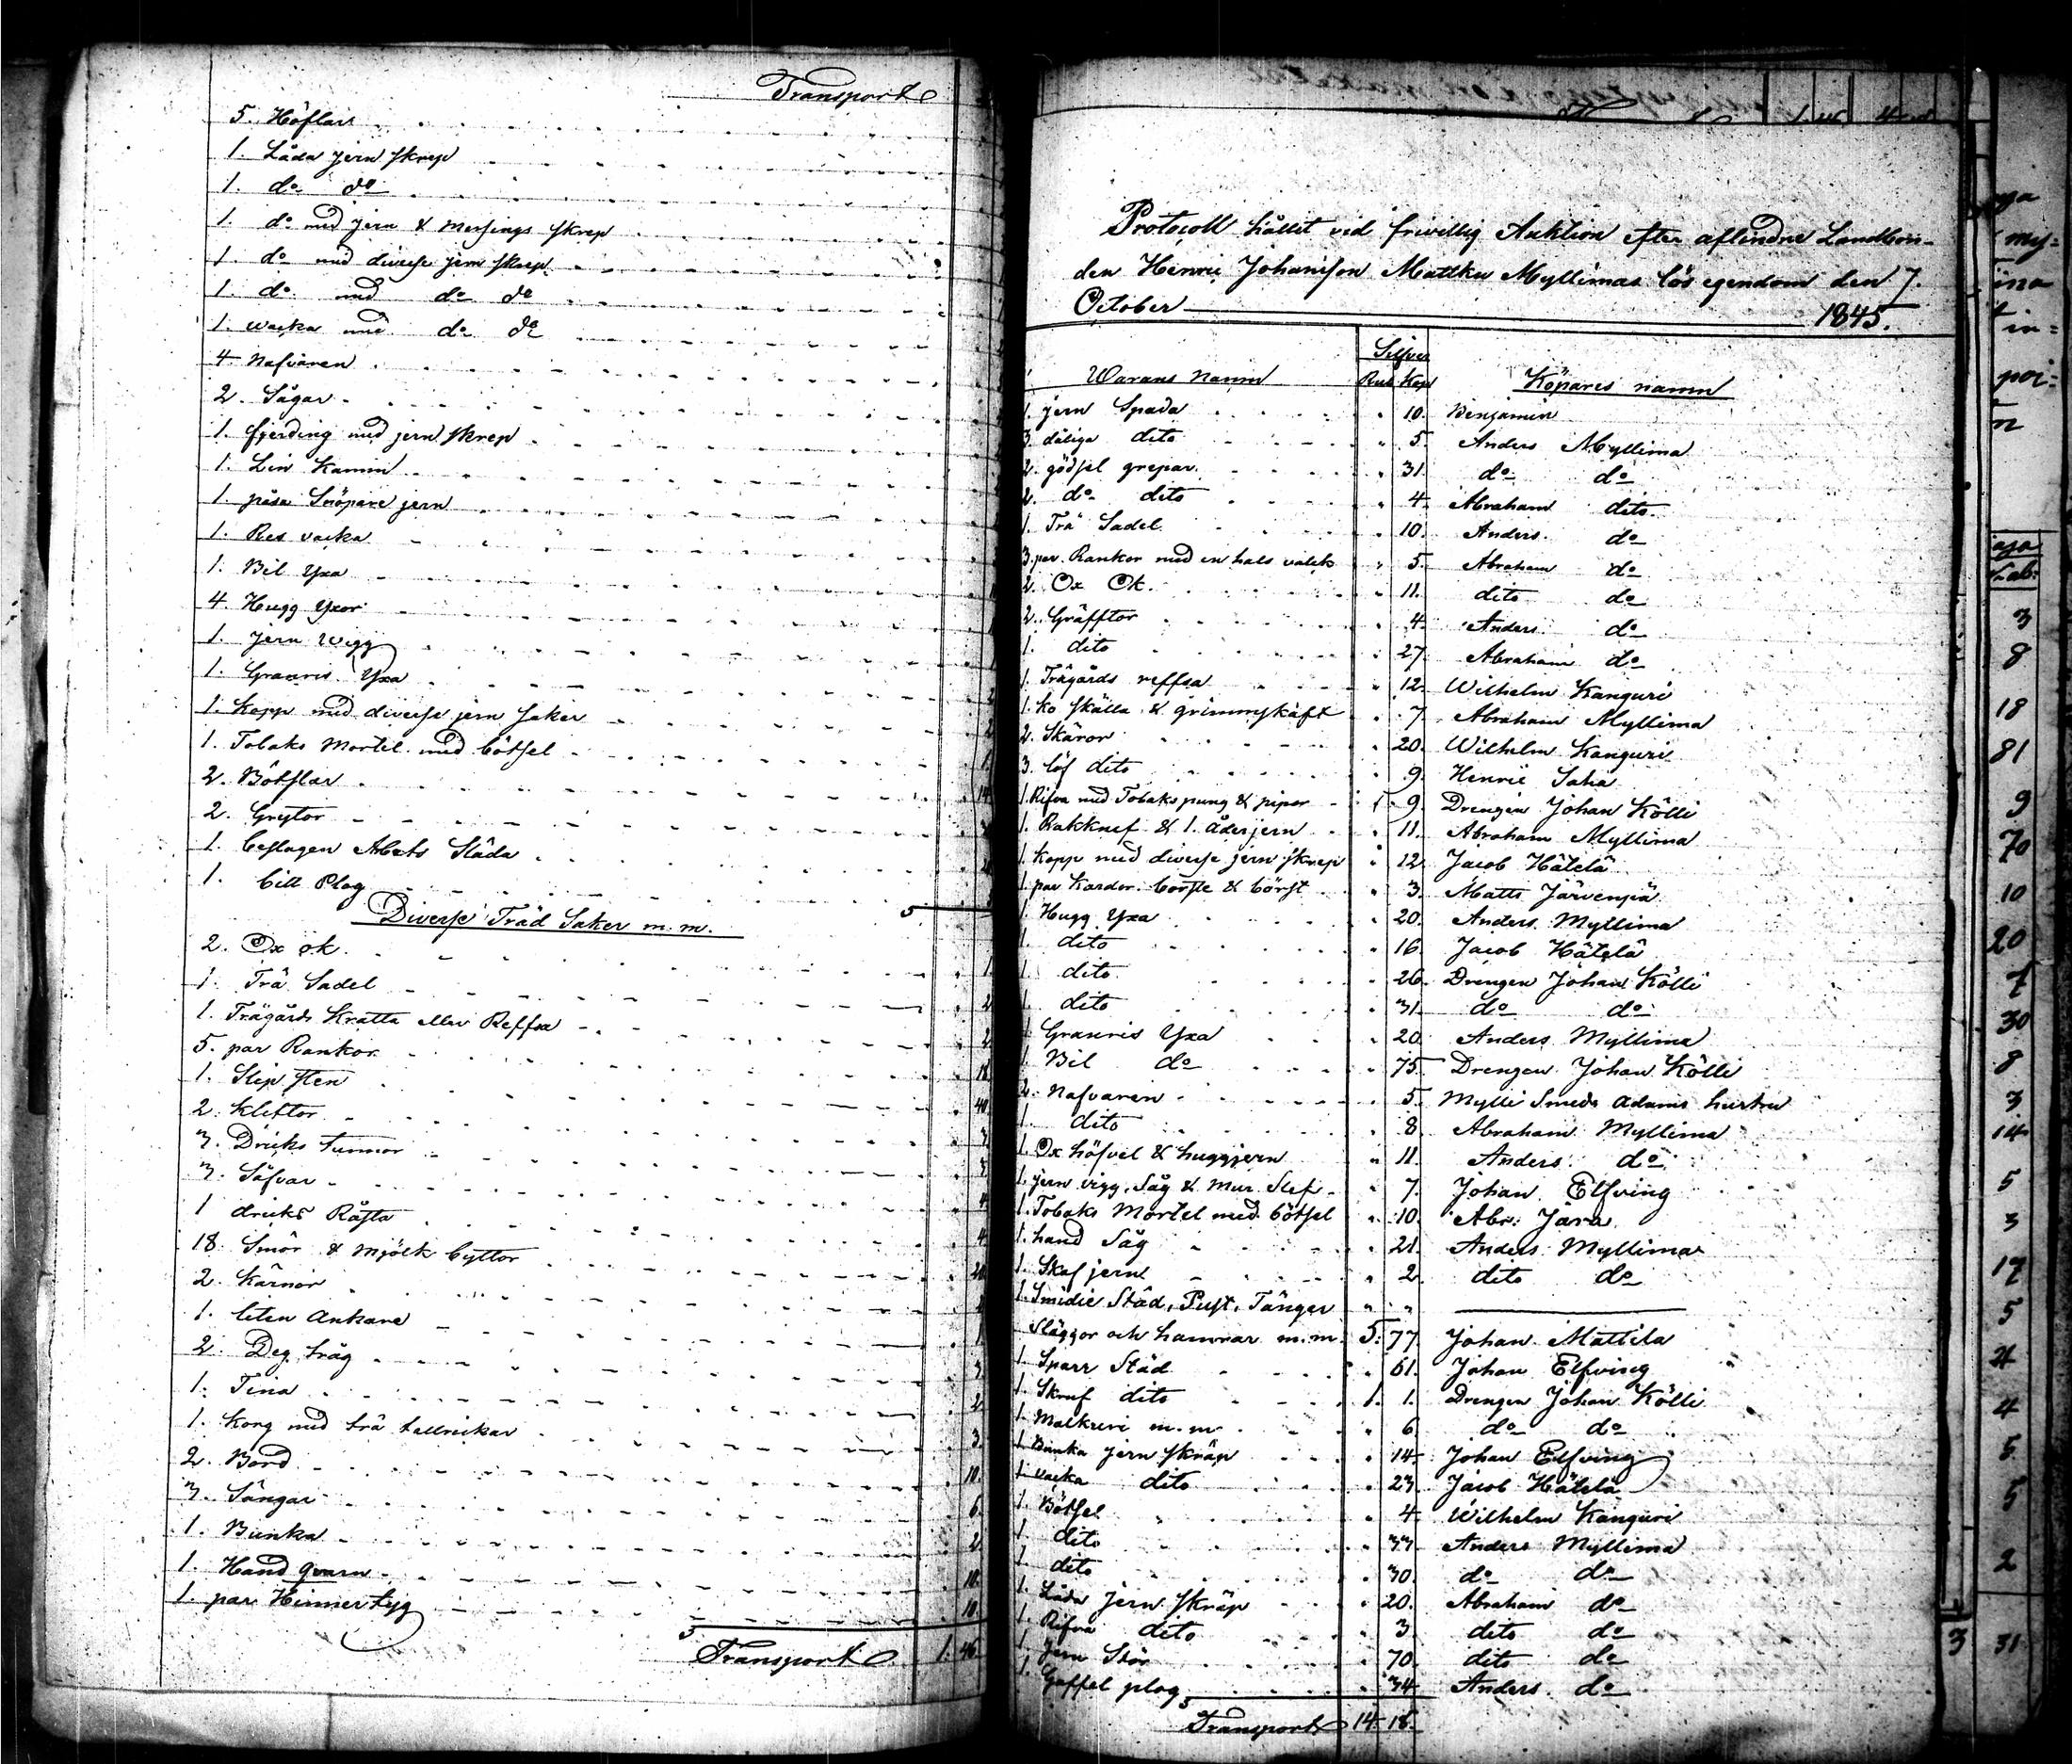 Transport
5. Höflar
1. Låda jern skrep
1. do do
1. do med jern & Messings skrep
1. do med diverse jern skrep
1. do med do do
1. vacka med do do
4 Nafvaren
2. Sågar
1. fjerding med jern skrep
1. Lin Kamm
1. påse Snöpare jern
1. Res vacka
1. Bil Yxa
4. Hugg Yxor
1. Jern Wigg
1. Granris Yxa
1. Kopp med diverse jern saker
1. Tobaks Mortel med bötsel
2. Bötslar
2. Grytor
1. beslagen Arbets Släda
1. bill Plog
Diverse Träd Saker m. m.
2. Ox ok
1. Trä Sadel
1. Trägårds Kratta eller Reffsa
5. par Rankor
1. Slip sten
2. Kliftor
3. Dricks tunnor 3
3. Såfvar 4
1 dricks Råsta 4
18. Smör & Mjölk byttor 20
2. Kärnor
1. liten Ankare
2. Deg tråg
1. Tina 2
1. Korg med trä tallrickar 3.
2. Bord 10.
3. Sängar 6.
1. Bunka 2
1. Hand qvarn 10.
1. par Hinnertyg 10.
Transport 1. 46
Protocoll hållet vid frivillig Auktion efter aflindne Landbon-
den Henric Johansson Mattku Myllimas lös egendom den 7.
October 1845.
Silfver
Warans Namn Rub Kop Köpares namn
1. jern Spada " 10. Benjamin
3. dåliga dito " 5 Anders Myllima
2. gödsel grepar " 31. do do
2. do dito " 4 Abraham dito
1. Trä Sadel " 10. Anders do
3. par Rankor med en hals valck " 5 Abraham do
2 Ox Ok " 11. dito do
2. Gräfftor " 4. Anders do
1. dito " 27. Abraham do
1. Trägårds reffsa " 12. Wilhelm Kanguri
1. ko skälla & grimmskaft " 7. Abraham Myllima
2. Skäror " 20. Wilhelm Kanguri
3. löf dito " 9. Henric Saha
1. Rifva med Tobaks pung & pipor 1. 9. Drengen Johan Kölli
1. Rakknif & 1. Åderjern " 11. Abraham Myllima
1. Kopp med diverse jern skrep " 12. Jacob Hätelä
1. par Kardor borste & börst " 3. Matts Järvenpä
1 Hugg Yxa " 20. Anders Myllima
1. dito " 16. Jacob Hätelä
1. dito " 26. Drengen Johan Kölli
1. dito " 31. do do
1 Granris Yxa " 20. Anders Myllima
1. Bil do " 75. Drengen Johan Kölli
2. Nafvaren " 5. Mylli Smeds Adams hustru
1. dito " 8. Abraham Myllima
1. Ox höfvel & huggjern " 11. Anders do
1. jern vigg, Såg & Mur Slef " 7. Johan Elfving
1. Tobaks Mortel med bötsel " 10. Abr. Jära
1. hand Såg " 21. Anders Myllima
1. Skaf jern " 2. dito do
1. Smidie Städ, Pust, Tänger " "
Släggor och hamrar m.m. 5. 77. Johan Mattila
1. Sparr Städ " 61. Johan Elfving
1. Skruf dito 1. 1. Drengen Johan Kölli
1. m.m " 6 do do
1. Bunka jern skräp " 14. Johan Elfving
1. vacka dito " 23. Jacob Hätelä
1. Bötsel " 4 Wilhelm Kanguri
1. dito " 33. Anders Myllima
1 dito " 30. do do
1. Låda jern skräp " 20. Abraham do
1. Rifva dito " 3. dito do
1. Jern Stör " 70. dito do
1. Gaffel plog " 34 Anders do
Transport 14. 18.
my=
in=
3
8
18
81
9
70
10
20
7
30
8
3
14
5
3
17
5
4
4
5
5
2
3 31